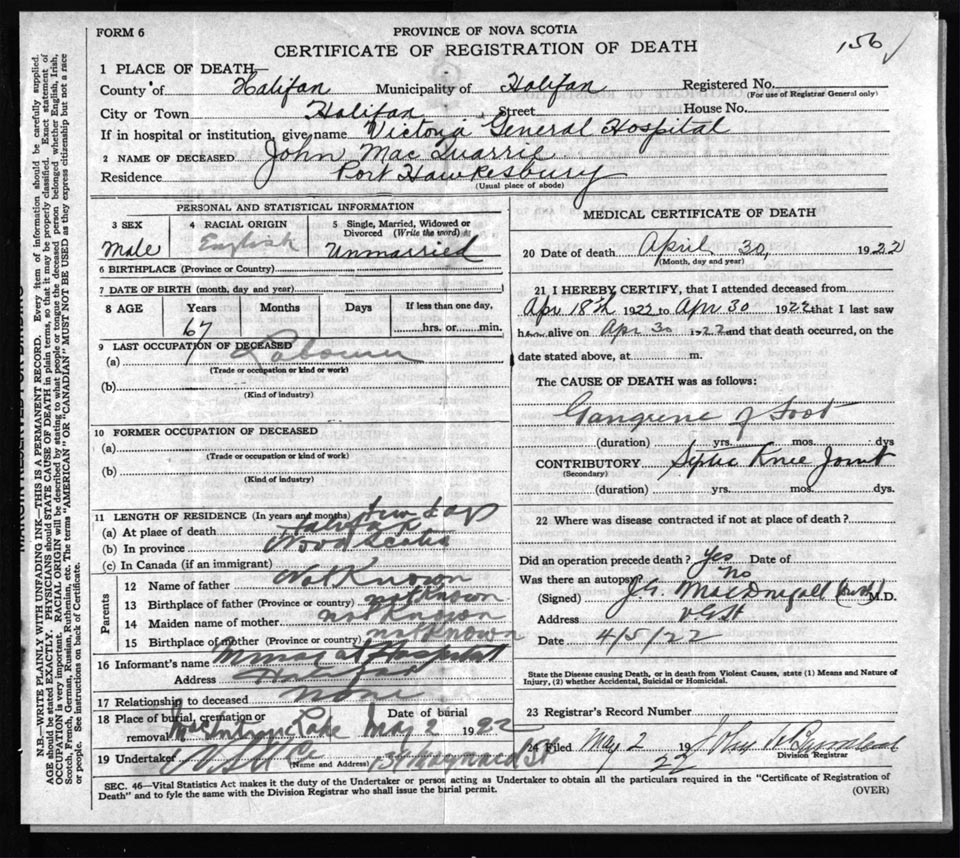 FORM 6
PROVINCE OF NOVA SCOTIA
CERTIFICATE OF REGISTRATION OF DEATH
156
1 PLACE OF DEATH—
County of Halifax Municipality of Halifax Registered No.
(For use of Registrar General only)
City or Town Halifax Street House No.
If in hospital or institution, give name Victoria General Hospital
2 NAME OF DECEASED John Mac Quarrie
Residence Port Hawkesbury
(Usual place of abode)
PERSONAL AND STATISTICAL INFORMATION
3 SEX 4 RACIAL ORIGIN 5 Single, Married, Widowed or Divorced (Write the word)
Male English Unmarried
6 BIRTHPLACE (Province or Country)
7 DATE OF BIRTH (month, day and year)
8 AGE Years Months Days If less than one day,
67 hrs. or min.
9 LAST OCCUPATION OF DECEASED
(a) Labourer
(Trade or occupation or kind or work)
(b)
(Kind of industry)
10 FORMER OCCUPATION OF DECEASED
(a)
(Trade or occupation or kind of work)
(b)
(Kind of industry)
11 LENGTH OF RESIDENCE (In years and months) few days
(a) At place of death Halifax
(b) In province Nova Scotia
(c) In Canada (if an immigrant)
Parents
12 Name of father Not Known
13 Birthplace of father (Province or country) not known
14 Maiden name of mother not Known
15 Birthplace of mother (Province or country) not known
16 Informant's name at Hospital
Address Halifax
17 Relationship to deceased none
18 Place of burial, cremation or removal Lake Date of burial May 2 1922
19 Undertaker (Name and Address) St
MEDICAL CERTIFICATE OF DEATH
20 Date of death April 30, 1922
(Month, day and year)
21 I HEREBY CERTIFY, that I attended deceased from
Apr 18th 1922 to Apr 30 1922 that I last saw
h alive on Apr 30 1922 and that death occurred, on the
date stated above, at m.
The CAUSE OF DEATH was as follows:
Gangrene of Foot
(duration) yrs. mos. dys
CONTRIBUTORY Septic Knee Joint
(Secondary)
(duration) yrs. mos. dys.
22 Where was disease contracted if not at place of death?
Did an operation precede death? Yes Date of
Was there an autopsy? No
(Signed) J.G. MacDougall M.D.
Address V.G.H
Date 4/5/22
State the Disease causing Death, or in death from Violent Causes, state (1) Means and Nature of
Injury, (2) whether Accidental, Suicidal or Homicidal.
23 Registrar's Record Number
24 Filed May 2 1922
Division Registrar
SEC. 46—Vital Statistics Act makes it the duty of the Undertaker or person acting as Undertaker to obtain all the particulars required in the "Certificate of Registration of
Death" and to fyle the same with the Division Registrar who shall issue the burial permit.
(OVER)
MARGIN RESERVED FOR BINDING
N.B.—WRITE PLAINLY WITH UNFADING INK—THIS IS A PERMANENT RECORD. Every item of information should be carefully supplied.
AGE should be stated EXACTLY. PHYSICIANS should STATE CAUSE OF DEATH in plain terms, so that it may be properly classified. Exact statement of
OCCUPATION is very important. RACIAL ORIGIN will be described by stating to what people or tongue the deceased person belonged whether English, Irish,
Scotch, French, German, Russian, Ruthenian, etc. The terms "AMERICAN" OR "CANADIAN" MUST NOT BE USED as they express citizenship but not a race
or people. See instructions on back of Certificate.